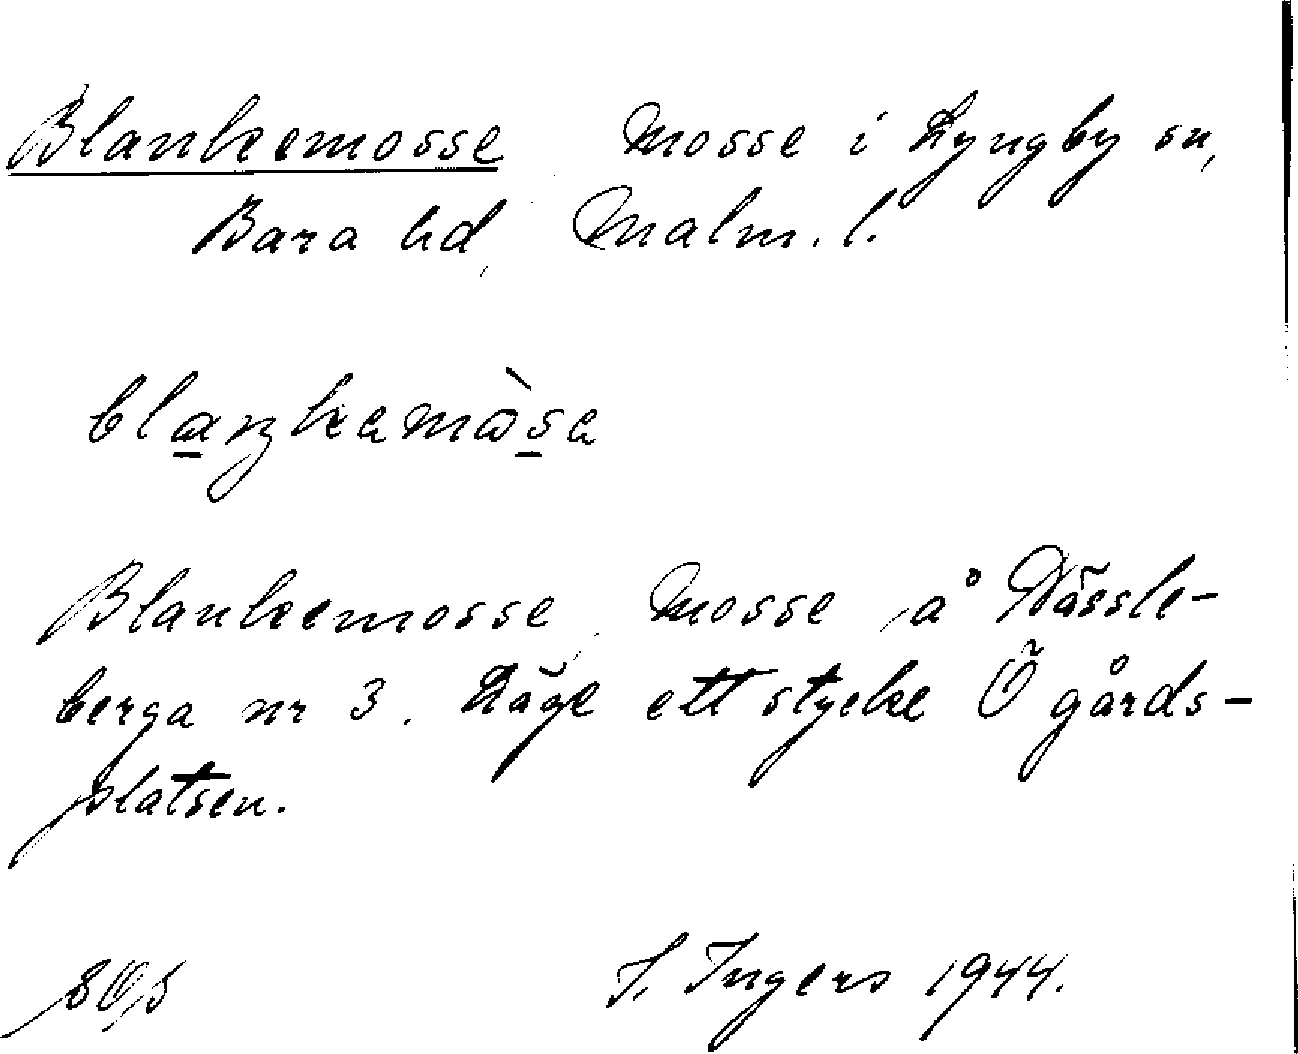 Blankemosse Mosse i Lyngby sn,
Bara hd, Malm. l.
blaŋkamòsa
Blankemosse. Mosse å Nässle-
berga nr 3. Läge ett stycke Ö gårds-
platsen.
I. Ingers 1944.